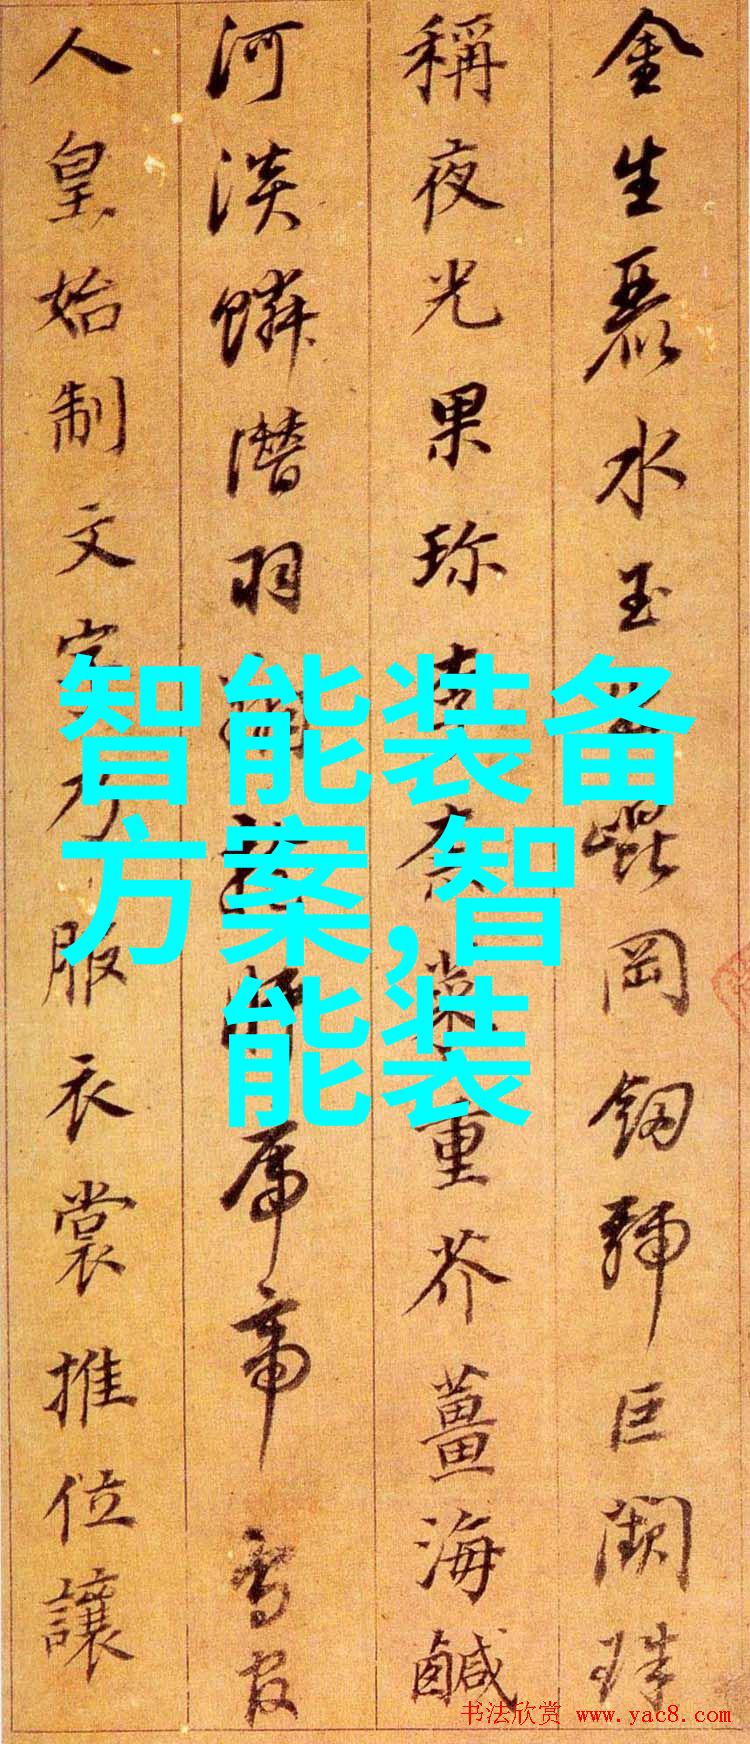 金生麗水玉出崐岡釼號巨闕珠
稱夜光果珍李柰菜重芥薑海鹹
河淡鱗潛羽翔龍師火帝鳥官
人皇始制文字乃服衣裳推位讓
智能装备
方案,智
能装
书法欣赏 www.yac8.com